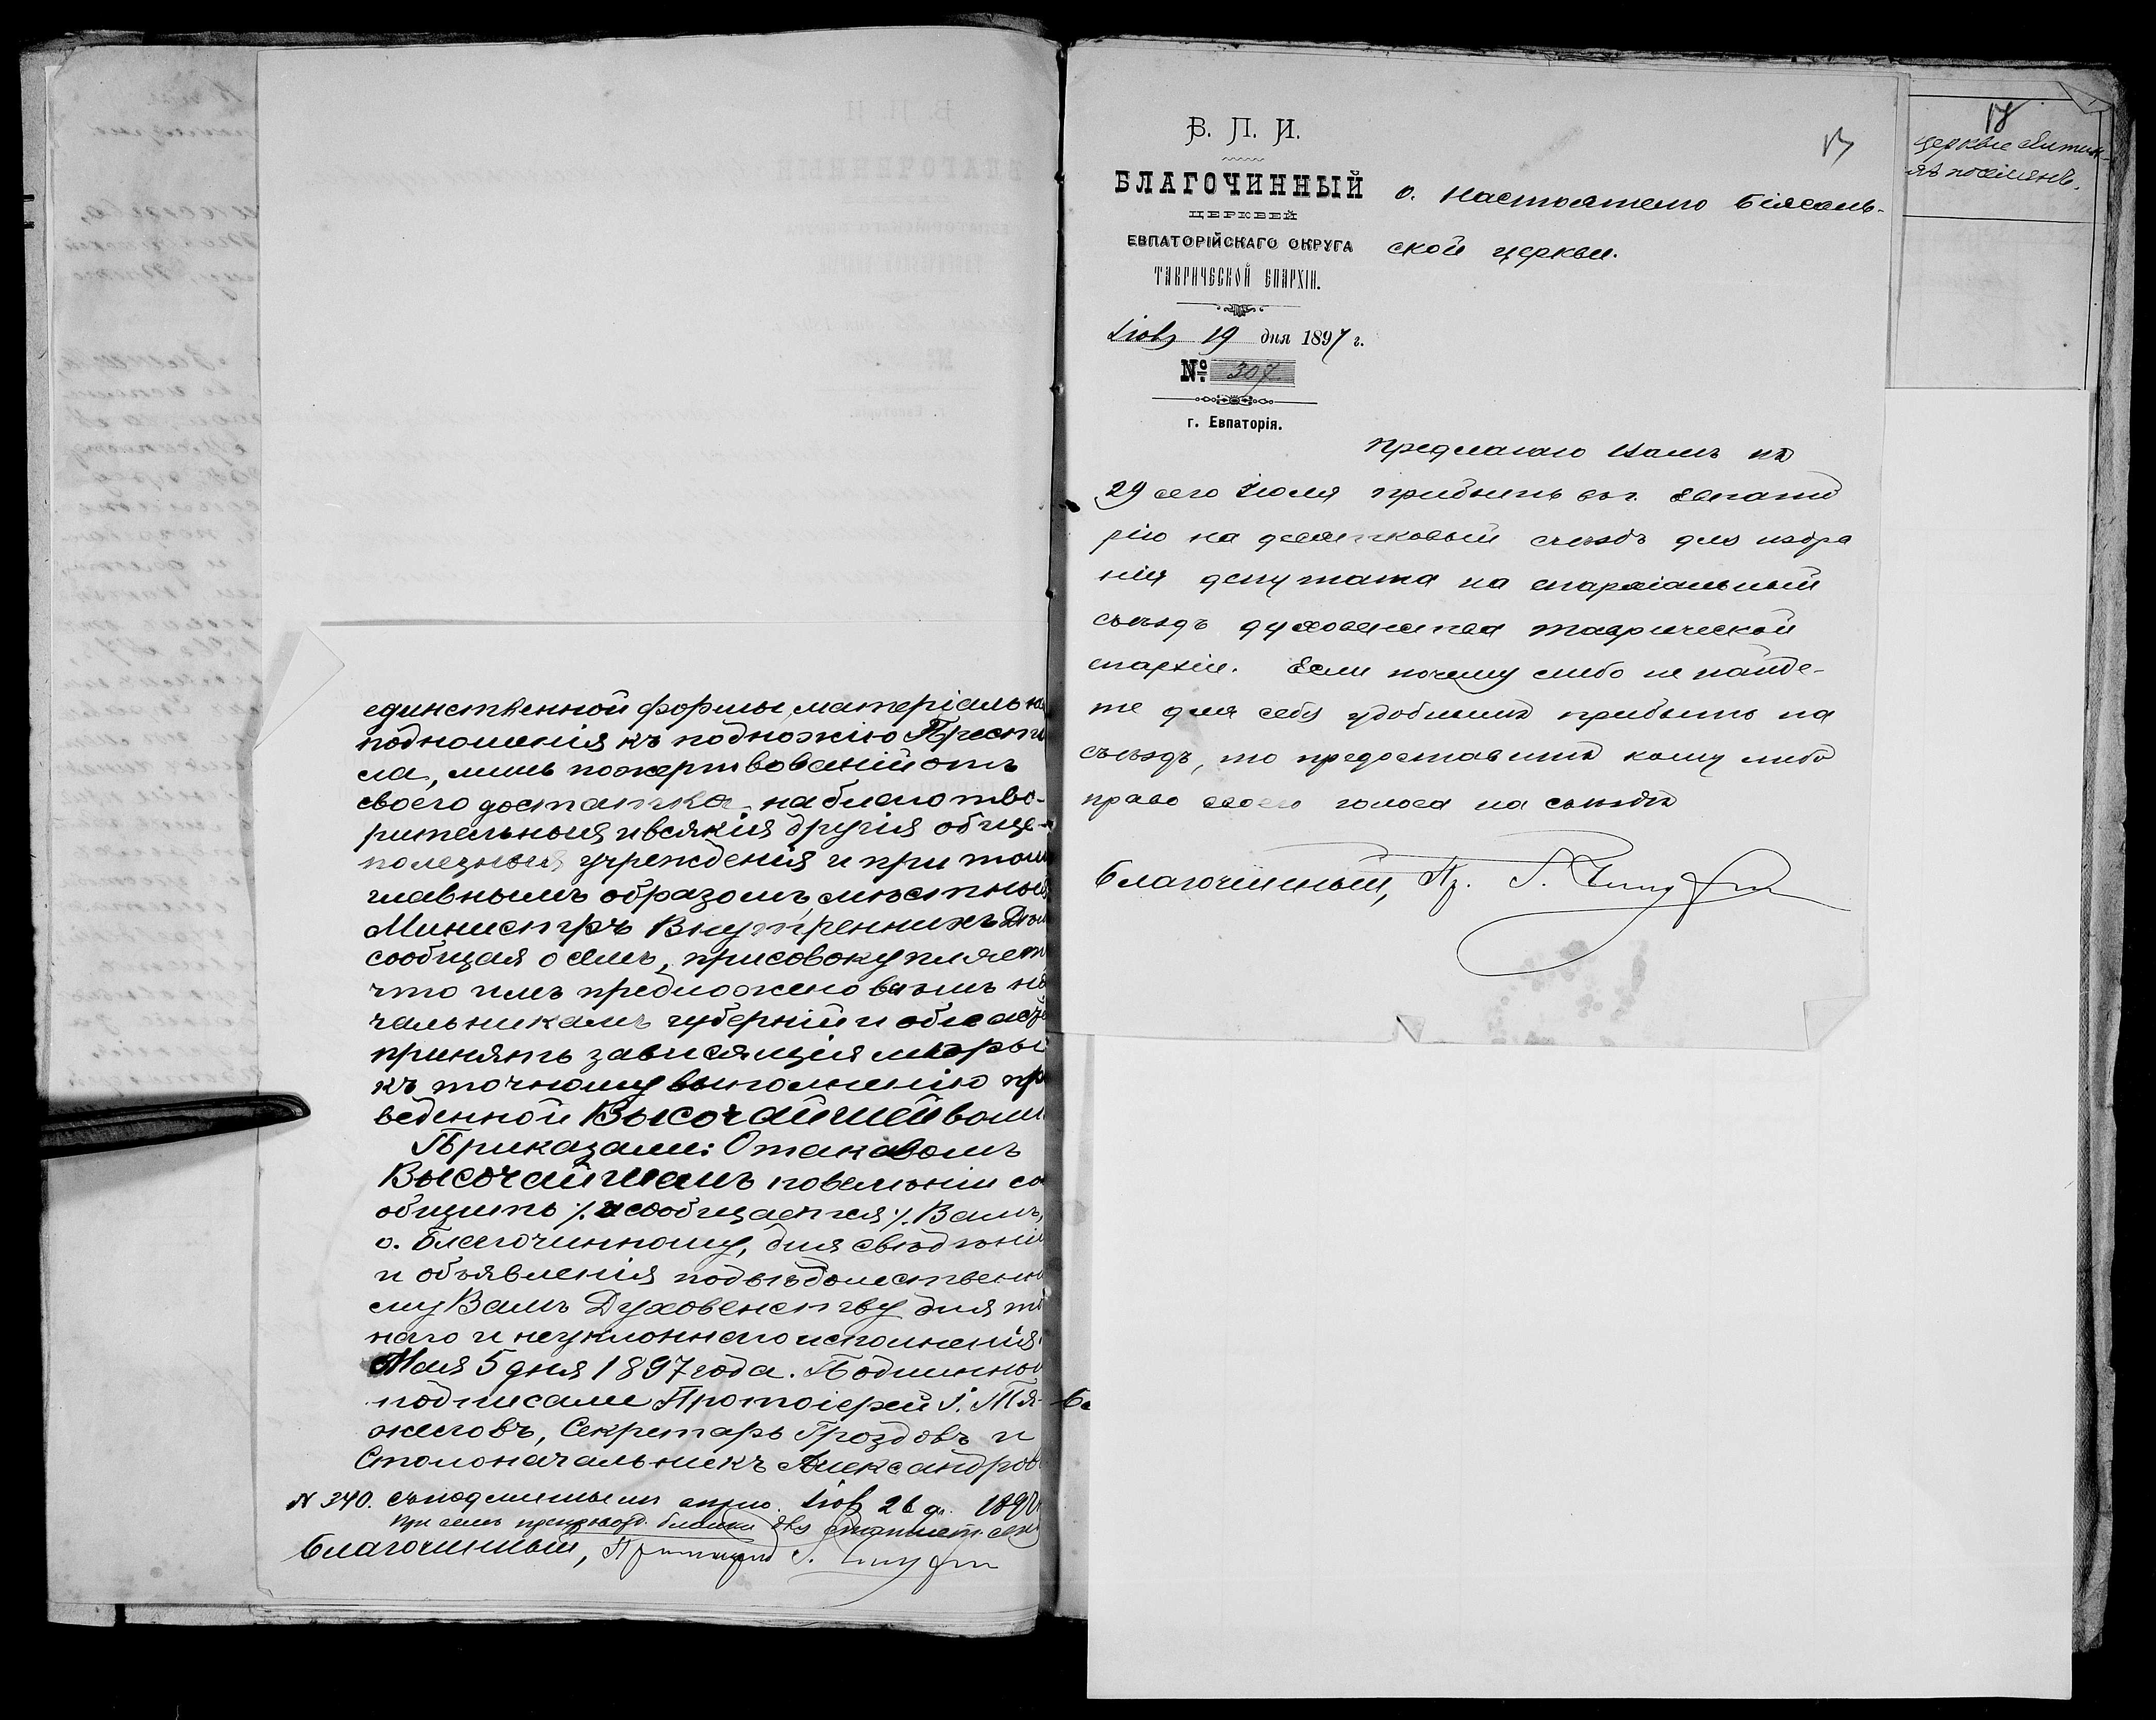 единственной формы, матеріальна
подношенія къ подножію Прест
ла, лишь пожертвованій отъ
своего достатка на благотво-
рительныя и всякія другія обще-
полезныя учрежденія и при томъ
главнымъ образомъ, мѣстныя
Министръ Внутреннихъ Дѣл
сообщая о семъ, присовокупляет
что имъ предложено всѣмъ на
чальникамъ губерній и областе
принять зависящія мѣры
къ точному выполненію пр
веденной Высочайшей воли
Приказали: О таковомъ
Высочайшемъ повелѣніи со
общить /. и сообщается ./. Вамъ,
о. Благочинному, для свѣдѣні
и объявленія подвѣдомственно
му Вамъ Духовенству для то
наго и неуклоннаго исполненія
Мая 5 дня 1897 года. Подлинно
подписали Протоіерей І. Тя-
желовъ, Секретарь Гроздовъ и
Столоначальникъ Александров
№ 340. Съ подлиннымъ вѣрно. 26 д. 1897
При семъ бланки два
Благочинный,
В. П. И.
БЛАГОЧИННЫЙ
ЦЕРКВЕЙ
ЕВПАТОРІЙСКАГО ОКРУГА
ТАВРИЧЕСКОЙ ЕПАРХІИ.
19 дня 1897 г.
№ 307
г. Евпаторія.
о. Настоятелю Біясаль-
ской церкви.
Предлагаю Вамъ на
29 сего Іюля прибыть въ г. Евпато
рію на съѣздъ для избра
нія депутата на епархіальный
съѣздъ духовенства Таврической
епархіи. Если почему либо не найде-
те для себя удобнымъ прибыть на
съѣздъ, то предоставить кому либо
право своего голоса на съѣздѣ
Благочинный, Пр. І.
церкви